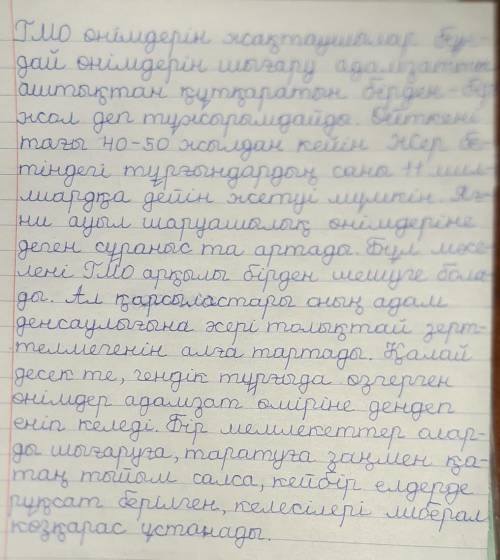 ГМО өнімдерін жақтаушылар бұн-
дай өнімдерін шығару адамзатты
аштықтан құтқаратын бірден-бір
жол деп тұжырымдайды. Өйткені
тағы 40-50 жылдан кейін Жер бе-
тіндегі тұрғындардың саны 11 мил-
лиардқа дейін жетуі мүмкін. Яғ-
ни ауыл шаруашылық өнімдеріне
деген сұраныс та артады. Бұл мәсе-
лені ГМО арқылы бірден шешуге бола-
ды. Ал қарсыластары оның адам
денсаулығына жері толықтай зерт-
телмегенін алға тартады. Қалай
десек те, гендік тұрғыда өзгерген
өнімдер адамзат өміріне дендеп
еніп келеді. Бір мемлекеттер олар-
ды шығаруға, таратуға заңмен қа-
таң тыйым салса, кейбір елдерде
рұқсат берілген, келесілері либерал
көзқарас ұстанады.